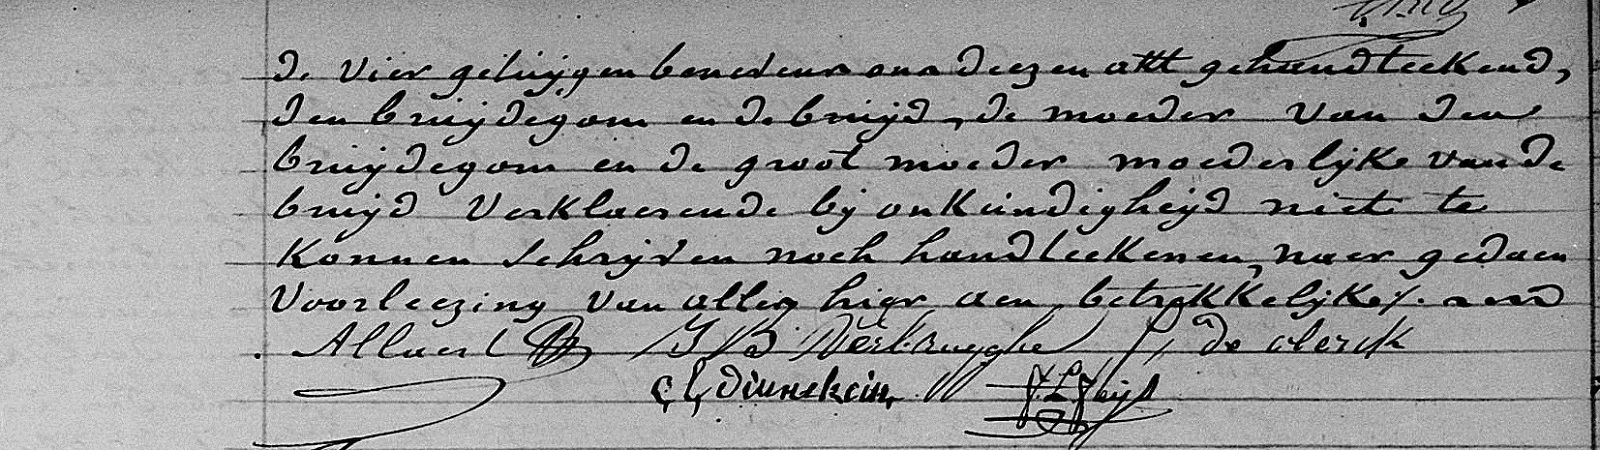 de vier getuijgen benevens ons deezen akt gehandteekend,
den bruijdegom en de bruijd, de moeder van den
bruijdegom en de groot moeder moederlijke van de
bruijd verklaerende bij onkundigheijd niet te
konnen schrijven noch handteekenen, naer gedaen
voorleezing van alles hier aen betrekkelijk
Allaert J B Verbrugghe de clerck